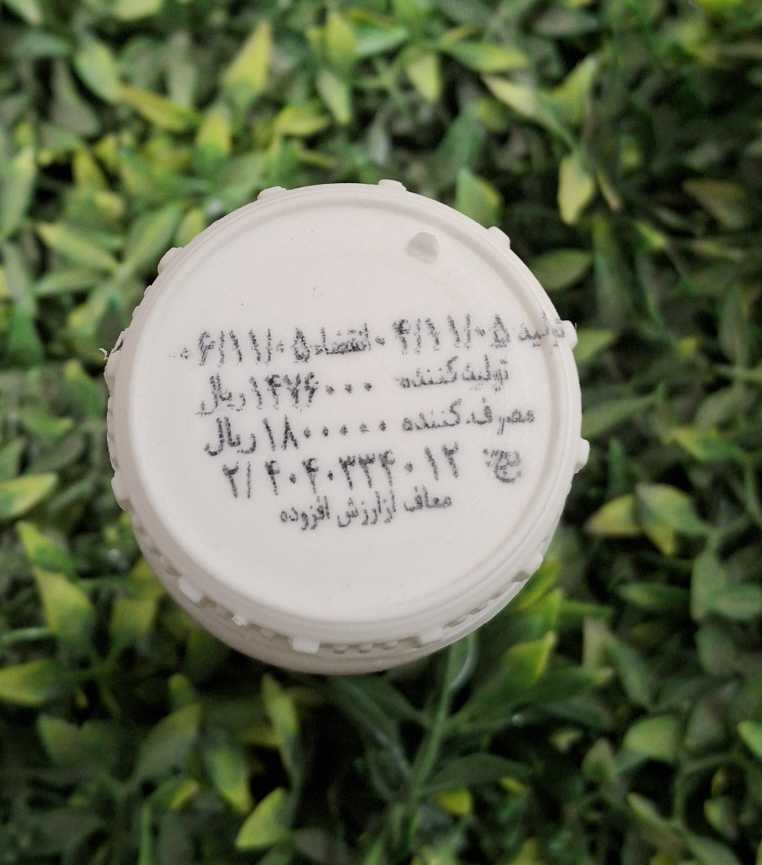 تولید ۰۴/۱۱/۰۵ انقضاء ۰۶/۱۱/۰۵
تولیدکننده ۱۴۷۶۰۰۰ ریال
مصرف‌کننده ۱۸۰۰۰۰۰ ریال
۲/۴۰۴۰۳۳۴۰۱۲
معاف ازارزش افزوده